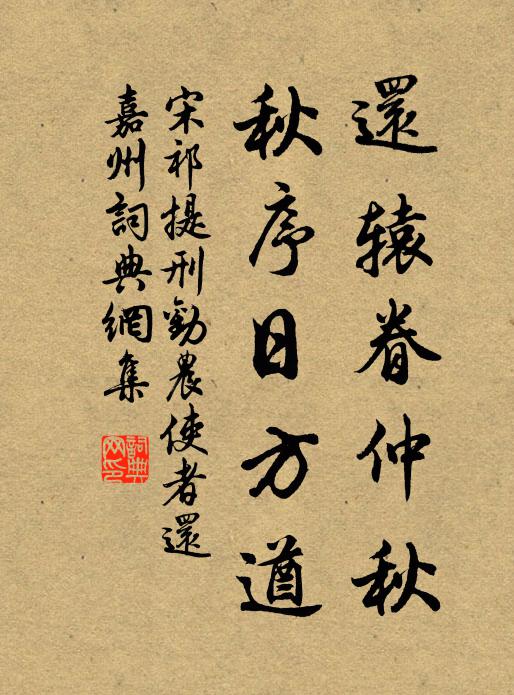 還辕眷仲秋
秋序日方遒
宋祁提刑勸農使者還
嘉州詞典網集
詞典网印